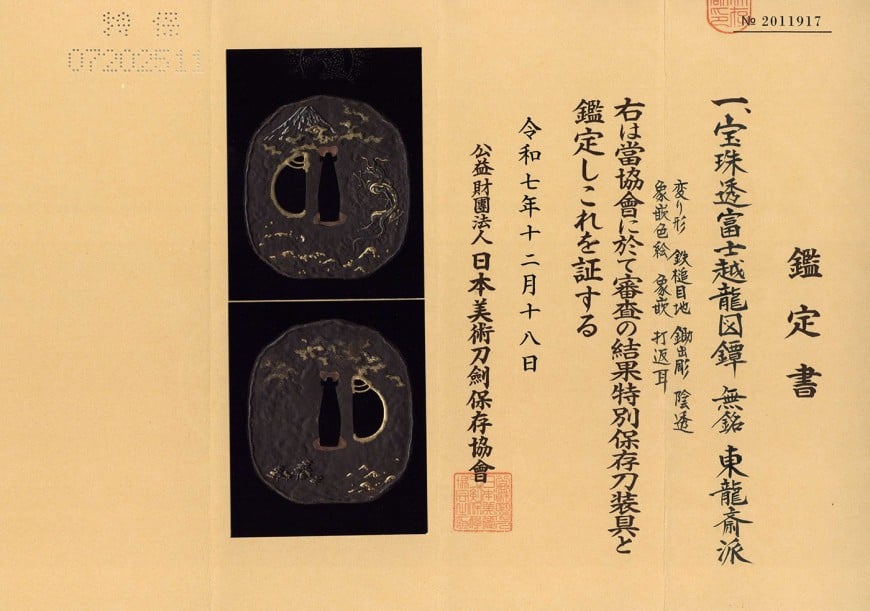 № 2011917
鑑定書
一、宝珠透富士越龍図鐔 無銘 東龍斎派
変り形 鉄槌目地 鋤出彫 陰透
象嵌色絵 象嵌 打返耳
右は當協會に於て審査の結果特別保存刀装具と
鑑定しこれを証する
令和七年十二月十八日
公益財團法人 日本美術刀劍保存協會
07202511